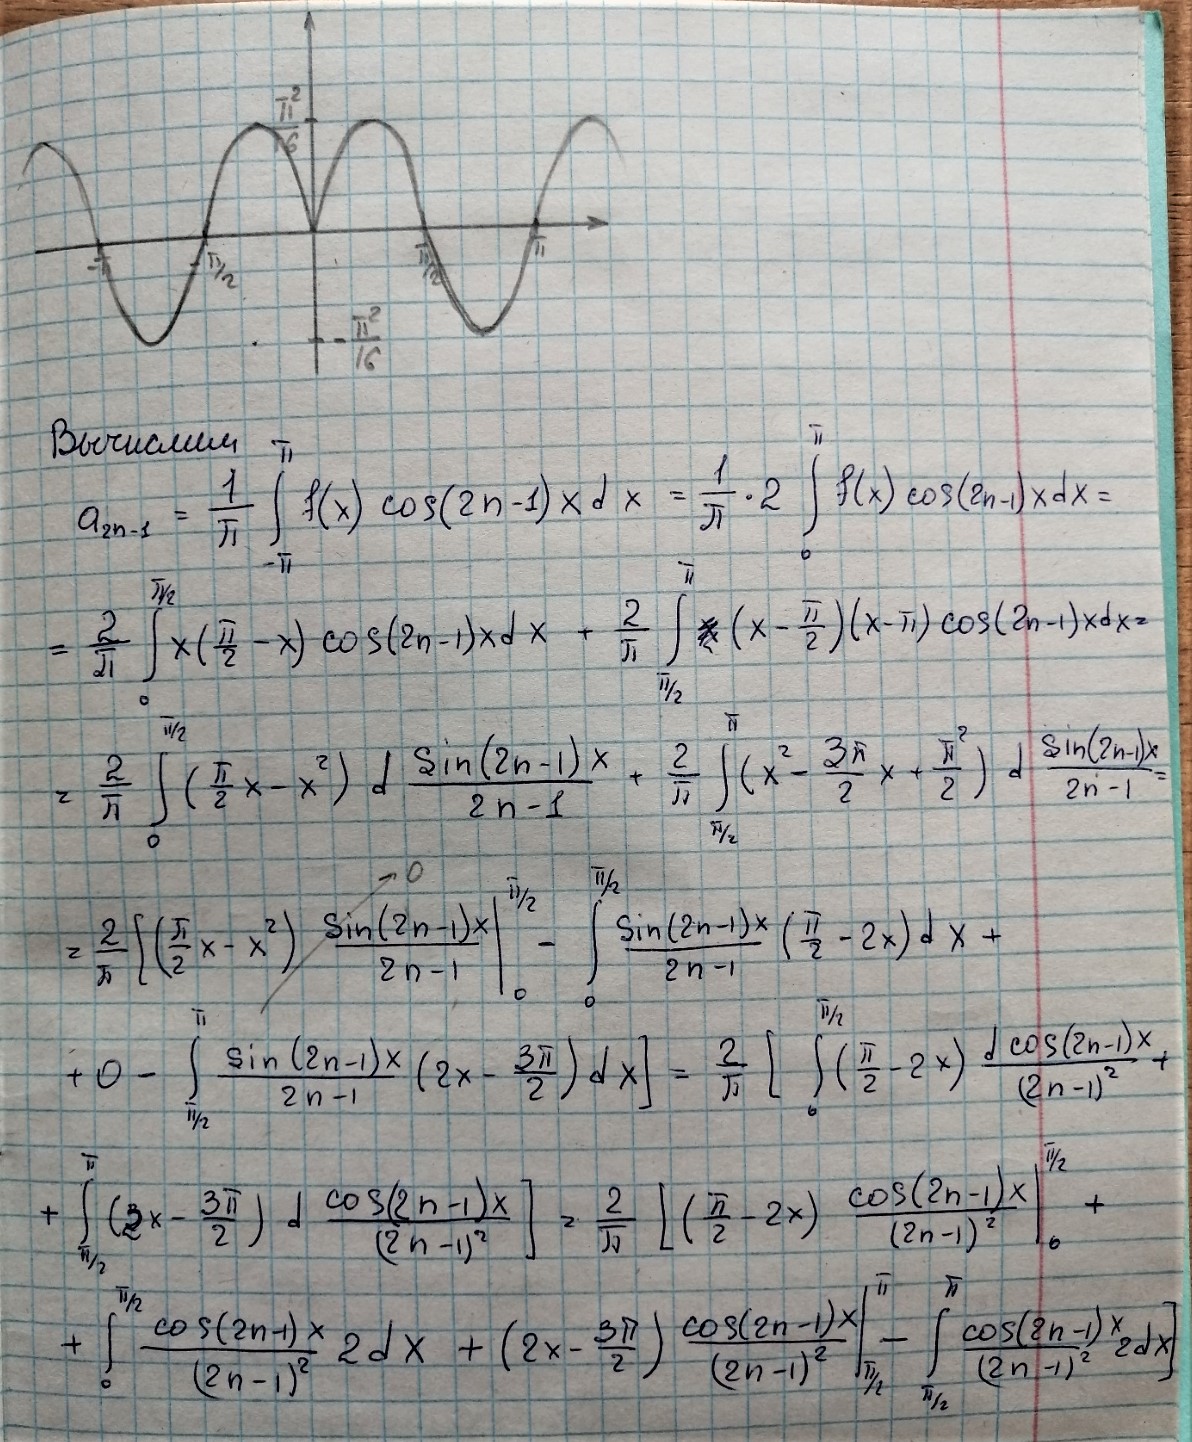 π²/6
-π -π/2 π/2 π
-π²/16
Вычислим
a₂ₙ₋₁ = 1/π ∫_{-π}^{π} f(x) cos(2n-1)x dx = 1/π · 2 ∫_0^π f(x) cos(2n-1)x dx =
= 2/π ∫_0^{π/2} x(π/2 - x) cos(2n-1)x dx + 2/π ∫_{π/2}^π (x - π/2)(x-π) cos(2n-1)x dx =
= 2/π ∫_0^{π/2} (π/2 x - x²) d sin(2n-1)x/(2n-1) + 2/π ∫_{π/2}^π (x² - 3π/2 x + π²/2) d sin(2n-1)x/(2n-1) =
= 2/π [(π/2 x - x²) sin(2n-1)x/(2n-1) |_0^{π/2} → 0 - ∫_0^{π/2} sin(2n-1)x/(2n-1) (π/2 - 2x) dx +
+ 0 - ∫_{π/2}^π sin(2n-1)x/(2n-1) (2x - 3π/2) dx] = 2/π [∫_0^{π/2} (π/2 - 2x) d cos(2n-1)x/(2n-1)² +
+ ∫_{π/2}^π (2x - 3π/2) d cos(2n-1)x/(2n-1)²] = 2/π [(π/2 - 2x) cos(2n-1)x/(2n-1)² |_0^{π/2} +
+ ∫_0^{π/2} cos(2n-1)x/(2n-1)² 2dx + (2x - 3π/2) cos(2n-1)x/(2n-1)² |_{π/2}^π - ∫_{π/2}^π cos(2n-1)x/(2n-1)² 2dx]